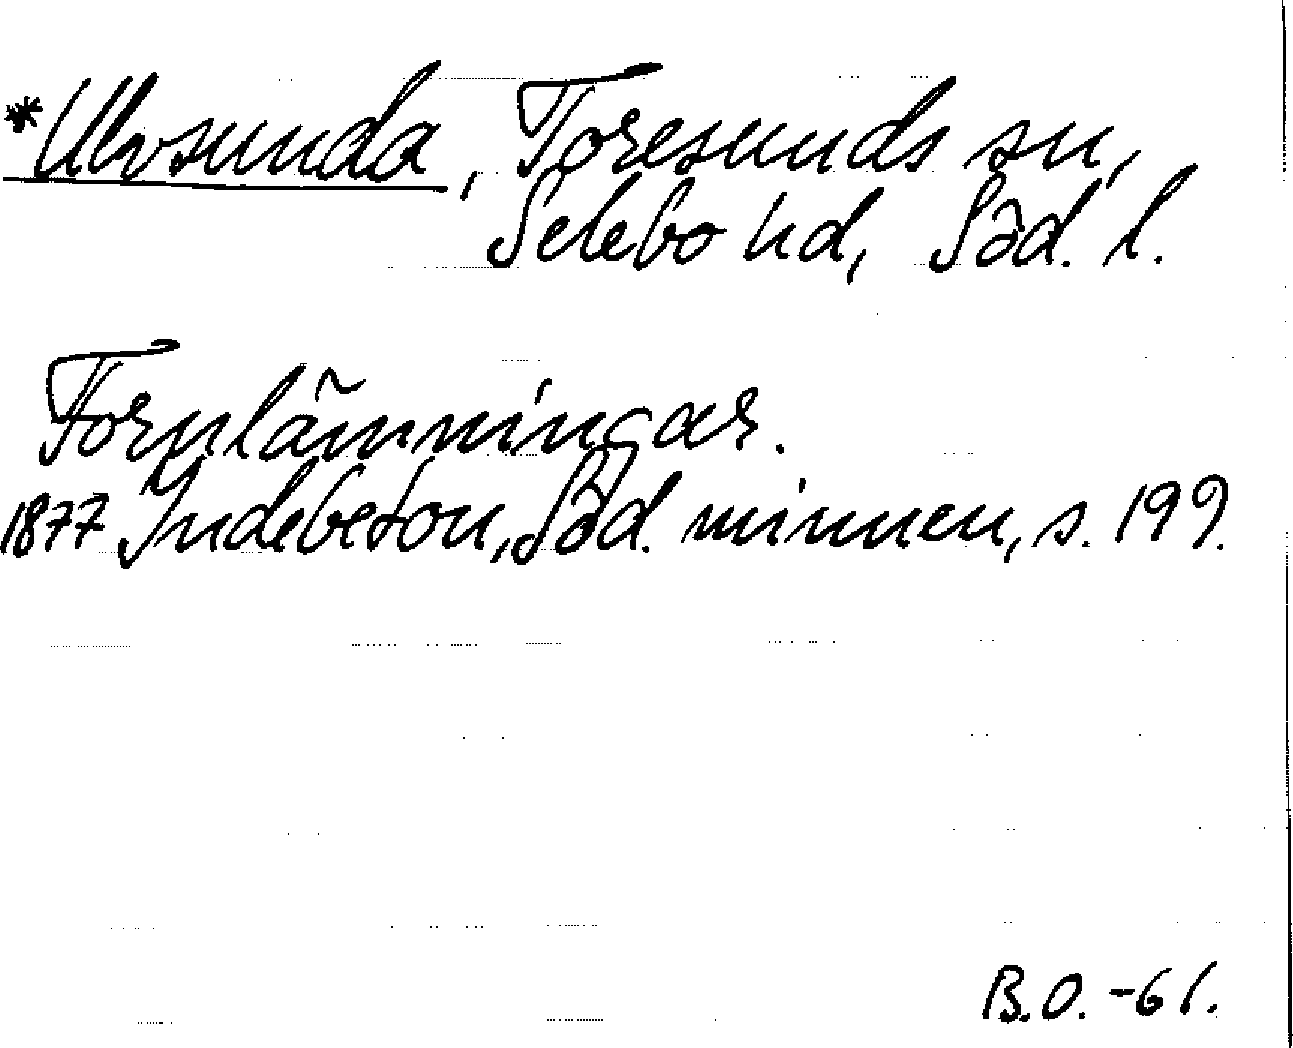 *Ulvsunda, Toresunds sn,
Selebo hd, Söd. l.
Fornlämningar.
1877 Indebetou, Söd. minnen, s. 199.
B.O. -61.